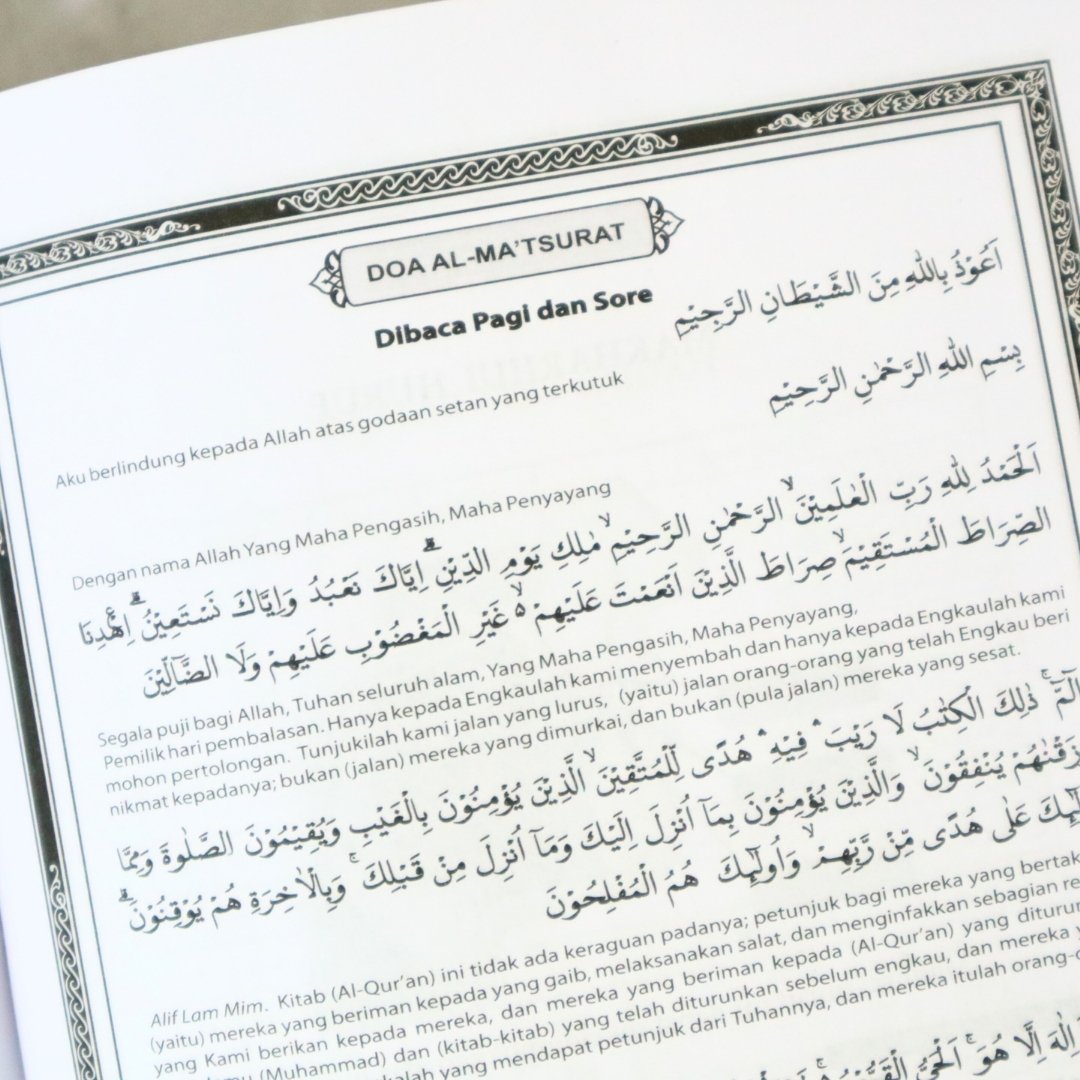 DOA AL-MA'TSURAT
Dibaca Pagi dan Sore
اَعُوْذُ بِاللهِ مِنَ الشَّيْطَانِ الرَّجِيْمِ
Aku berlindung kepada Allah atas godaan setan yang terkutuk
بِسْمِ اللهِ الرَّحْمٰنِ الرَّحِيْمِ
Dengan nama Allah Yang Maha Pengasih, Maha Penyayang
اَلْحَمْدُ لِلّٰهِ رَبِّ الْعٰلَمِيْنَۙ الرَّحْمٰنِ الرَّحِيْمِۙ مٰلِكِ يَوْمِ الدِّيْنِۗ اِيَّاكَ نَعْبُدُ وَاِيَّاكَ نَسْتَعِيْنُۗ اِهْدِنَا
الصِّرَاطَ الْمُسْتَقِيْمَۙ صِرَاطَ الَّذِيْنَ اَنْعَمْتَ عَلَيْهِمْ ەۙ غَيْرِ الْمَغْضُوْبِ عَلَيْهِمْ وَلَا الضَّاۤلِّيْنَ
Segala puji bagi Allah, Tuhan seluruh alam, Yang Maha Pengasih, Maha Penyayang,
Pemilik hari pembalasan. Hanya kepada Engkaulah kami menyembah dan hanya kepada Engkaulah kami
mohon pertolongan. Tunjukilah kami jalan yang lurus, (yaitu) jalan orang-orang yang telah Engkau beri
nikmat kepadanya; bukan (jalan) mereka yang dimurkai, dan bukan (pula jalan) mereka yang sesat.
الۤمّۤۚ ذٰلِكَ الْكِتٰبُ لَا رَيْبَۛ فِيْهِۛ هُدًى لِّلْمُتَّقِيْنَۙ الَّذِيْنَ يُؤْمِنُوْنَ بِالْغَيْبِ وَيُقِيْمُوْنَ الصَّلٰوةَ وَمِمَّا
رَزَقْنٰهُمْ يُنْفِقُوْنَۙ وَالَّذِيْنَ يُؤْمِنُوْنَ بِمَآ اُنْزِلَ اِلَيْكَ وَمَآ اُنْزِلَ مِنْ قَبْلِكَۚ وَبِالْاٰخِرَةِ هُمْ يُوْقِنُوْنَۗ
عَلٰى هُدًى مِّنْ رَّبِّهِمْۙ وَاُولٰۤىِٕكَ هُمُ الْمُفْلِحُوْنَ
Alif Lam Mim. Kitab (Al-Qur'an) ini tidak ada keraguan padanya; petunjuk bagi mereka yang
(yaitu) mereka yang beriman kepada yang gaib, melaksanakan salat, dan menginfakkan sebagian
yang Kami berikan kepada mereka, dan mereka yang beriman kepada (Al-Qur'an) yang
(Muhammad) dan (kitab-kitab) yang telah diturunkan sebelum engkau, dan mereka
yang mendapat petunjuk dari Tuhannya, dan mereka itulah
اِلٰهَ اِلَّا هُوَۚ اَلْحَيُّ الْقَيُّوْمُ